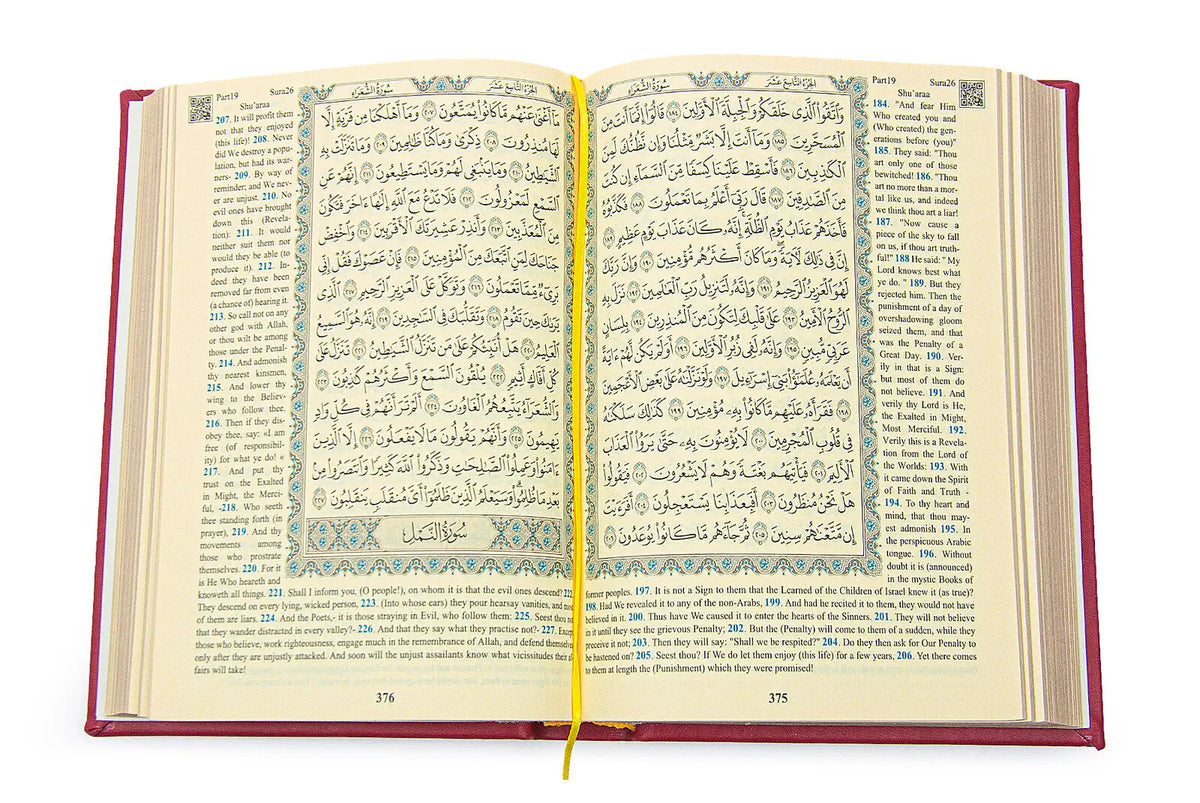 Part19 Sura26
Shu'araa
184. "And fear Him
Who created you and
(Who created) the gen-
erations before (you)"
185. They said: "Thou
art only one of those
bewitched! 186. "Thou
art no more than a mor-
tal like us, and indeed
we think thou art a liar!
187. "Now cause a
piece of the sky to fall
on us, if thou art truth-
ful!" 188 He said: " My
Lord knows best what
ye do. " 189. But they
rejected him. Then the
punishment of a day of
overshadowing gloom
seized them, and that
was the Penalty of a
Great Day. 190. Ver-
ily in that is a Sign:
but most of them do
not believe. 191. And
verily thy Lord is He,
the Exalted in Might,
Most Merciful. 192.
Verily this is a Revela-
tion from the Lord of
the Worlds: 193. With
it came down the Spirit
of Faith and Truth -
194. To thy heart and
mind, that thou may-
est admonish 195. In
the perspicuous Arabic
tongue. 196. Without
doubt it is (announced)
in the mystic Books of
الجُزْءُ التَّاسِعَ عَشَرَ سُورَةُ الشُّعَرَاءِ
وَٱتَّقُوا۟ ٱلَّذِى خَلَقَكُمْ وَٱلْجِبِلَّةَ ٱلْأَوَّلِينَ ١٨٤ قَالُوٓا۟ إِنَّمَآ أَنتَ مِنَ
ٱلْمُسَحَّرِينَ ١٨٥ وَمَآ أَنتَ إِلَّا بَشَرٌ مِّثْلُنَا وَإِن نَّظُنُّكَ لَمِنَ
ٱلْكَٰذِبِينَ ١٨٦ فَأَسْقِطْ عَلَيْنَا كِسَفًا مِّنَ ٱلسَّمَآءِ إِن كُنتَ
مِنَ ٱلصَّٰدِقِينَ ١٨٧ قَالَ رَبِّىٓ أَعْلَمُ بِمَا تَعْمَلُونَ ١٨٨ فَكَذَّبُوهُ
فَأَخَذَهُمْ عَذَابُ يَوْمِ ٱلظُّلَّةِ إِنَّهُۥ كَانَ عَذَابَ يَوْمٍ عَظِيمٍ ١٨٩
إِنَّ فِى ذَٰلِكَ لَءَايَةً وَمَا كَانَ أَكْثَرُهُم مُّؤْمِنِينَ ١٩٠ وَإِنَّ رَبَّكَ
لَهُوَ ٱلْعَزِيزُ ٱلرَّحِيمُ ١٩١ وَإِنَّهُۥ لَتَنزِيلُ رَبِّ ٱلْعَٰلَمِينَ ١٩٢ نَزَلَ بِهِ
ٱلرُّوحُ ٱلْأَمِينُ ١٩٣ عَلَىٰ قَلْبِكَ لِتَكُونَ مِنَ ٱلْمُنذِرِينَ ١٩٤ بِلِسَانٍ
عَرَبِىٍّ مُّبِينٍ ١٩٥ وَإِنَّهُۥ لَفِى زُبُرِ ٱلْأَوَّلِينَ ١٩٦ أَوَلَمْ يَكُن لَّهُمْ ءَايَةً
أَن يَعْلَمَهُۥ عُلَمَٰٓؤُا۟ بَنِىٓ إِسْرَٰٓءِيلَ ١٩٧ وَلَوْ نَزَّلْنَٰهُ عَلَىٰ بَعْضِ ٱلْأَعْجَمِينَ
١٩٨ فَقَرَأَهُۥ عَلَيْهِم مَّا كَانُوا۟ بِهِۦ مُؤْمِنِينَ ١٩٩ كَذَٰلِكَ سَلَكْنَٰهُ
فِى قُلُوبِ ٱلْمُجْرِمِينَ ٢٠٠ لَا يُؤْمِنُونَ بِهِۦ حَتَّىٰ يَرَوُا۟ ٱلْعَذَابَ
ٱلْأَلِيمَ ٢٠١ فَيَأْتِيَهُم بَغْتَةً وَهُمْ لَا يَشْعُرُونَ ٢٠٢ فَيَقُولُوا۟
هَلْ نَحْنُ مُنظَرُونَ ٢٠٣ أَفَبِعَذَابِنَا يَسْتَعْجِلُونَ ٢٠٤ أَفَرَءَيْتَ
إِن مَّتَّعْنَٰهُمْ سِنِينَ ٢٠٥ ثُمَّ جَآءَهُم مَّا كَانُوا۟ يُوعَدُونَ ٢٠٦
former peoples. 197. It is not a Sign to them that the Learned of the Children of Israel knew it (as true)?
198. Had We revealed it to any of the non-Arabs, 199. And had he recited it to them, they would not have
believed in it. 200. Thus have We caused it to enter the hearts of the Sinners. 201. They will not believe
in it until they see the grievous Penalty; 202. But the (Penalty) will come to them of a sudden, while they
perceive it not; 203. Then they will say: "Shall we be respited?" 204. Do they then ask for Our Penalty to
be hastened on? 205. Seest thou? If We do let them enjoy (this life) for a few years, 206. Yet there comes
to them at length the (Punishment) which they were promised!
375
Part19 Sura26
Shu'araa
207. It will profit them
not that they enjoyed
(this life)! 208. Never
did We destroy a popu-
lation, but had its war-
ners- 209. By way of
reminder; and We nev-
er are unjust. 210. No
evil ones have brought
down this (Revela-
tion): 211. It would
neither suit them nor
would they be able (to
produce it). 212. In-
deed they have been
removed far from even
(a chance of) hearing it.
213. So call not on any
other god with Allah,
or thou wilt be among
those under the Penal-
ty. 214. And admonish
thy nearest kinsmen,
215. And lower thy
wing to the Believ-
ers who follow thee.
216. Then if they dis-
obey thee, say: «I am
free (of responsibil-
ity) for what ye do! «
217. And put thy
trust on the Exalted
in Might, the Merci-
ful, -218. Who seeth
thee standing forth (in
prayer), 219. And thy
movements among
those who prostrate
themselves. 220. For it
is He Who heareth and
knoweth all things. 221. Shall I inform you, (O people!), on whom it is that the evil ones descend? 222.
الجُزْءُ التَّاسِعَ عَشَرَ سُورَةُ الشُّعَرَاءِ
مَآ أَغْنَىٰ عَنْهُم مَّا كَانُوا۟ يُمَتَّعُونَ ٢٠٧ وَمَآ أَهْلَكْنَا مِن قَرْيَةٍ إِلَّا
لَهَا مُنذِرُونَ ٢٠٨ ذِكْرَىٰ وَمَا كُنَّا ظَٰلِمِينَ ٢٠٩ وَمَا تَنَزَّلَتْ بِهِ
ٱلشَّيَٰطِينُ ٢١٠ وَمَا يَنۢبَغِى لَهُمْ وَمَا يَسْتَطِيعُونَ ٢١١ إِنَّهُمْ عَنِ
ٱلسَّمْعِ لَمَعْزُولُونَ ٢١٢ فَلَا تَدْعُ مَعَ ٱللَّهِ إِلَٰهًا ءَاخَرَ فَتَكُونَ
مِنَ ٱلْمُعَذَّبِينَ ٢١٣ وَأَنذِرْ عَشِيرَتَكَ ٱلْأَقْرَبِينَ ٢١٤ وَٱخْفِضْ
جَنَاحَكَ لِمَنِ ٱتَّبَعَكَ مِنَ ٱلْمُؤْمِنِينَ ٢١٥ فَإِنْ عَصَوْكَ فَقُلْ إِنِّى
بَرِىٓءٌ مِّمَّا تَعْمَلُونَ ٢١٦ وَتَوَكَّلْ عَلَى ٱلْعَزِيزِ ٱلرَّحِيمِ ٢١٧ ٱلَّذِى
يَرَىٰكَ حِينَ تَقُومُ ٢١٨ وَتَقَلُّبَكَ فِى ٱلسَّٰجِدِينَ ٢١٩ إِنَّهُۥ هُوَ ٱلسَّمِيعُ
ٱلْعَلِيمُ ٢٢٠ هَلْ أُنَبِّئُكُمْ عَلَىٰ مَن تَنَزَّلُ ٱلشَّيَٰطِينُ ٢٢١ تَنَزَّلُ عَلَىٰ
كُلِّ أَفَّاكٍ أَثِيمٍ ٢٢٢ يُلْقُونَ ٱلسَّمْعَ وَأَكْثَرُهُمْ كَٰذِبُونَ ٢٢٣
وَٱلشُّعَرَآءُ يَتَّبِعُهُمُ ٱلْغَاوُۥنَ ٢٢٤ أَلَمْ تَرَ أَنَّهُمْ فِى كُلِّ وَادٍ
يَهِيمُونَ ٢٢٥ وَأَنَّهُمْ يَقُولُونَ مَا لَا يَفْعَلُونَ ٢٢٦ إِلَّا ٱلَّذِينَ
ءَامَنُوا۟ وَعَمِلُوا۟ ٱلصَّٰلِحَٰتِ وَذَكَرُوا۟ ٱللَّهَ كَثِيرًا وَٱنتَصَرُوا۟ مِنۢ
بَعْدِ مَا ظُلِمُوا۟ وَسَيَعْلَمُ ٱلَّذِينَ ظَلَمُوٓا۟ أَىَّ مُنقَلَبٍ يَنقَلِبُونَ ٢٢٧
سُورَةُ النَّمْلِ
They descend on every lying, wicked person, 223. (Into whose ears) they pour hearsay vanities, and most
of them are liars. 224. And the Poets,- it is those straying in Evil, who follow them: 225. Seest thou not
that they wander distracted in every valley?- 226. And that they say what they practise not?- 227. Except
those who believe, work righteousness, engage much in the remembrance of Allah, and defend themselves
only after they are unjustly attacked. And soon will the unjust assailants know what vicissitudes their
fairs will take!
376